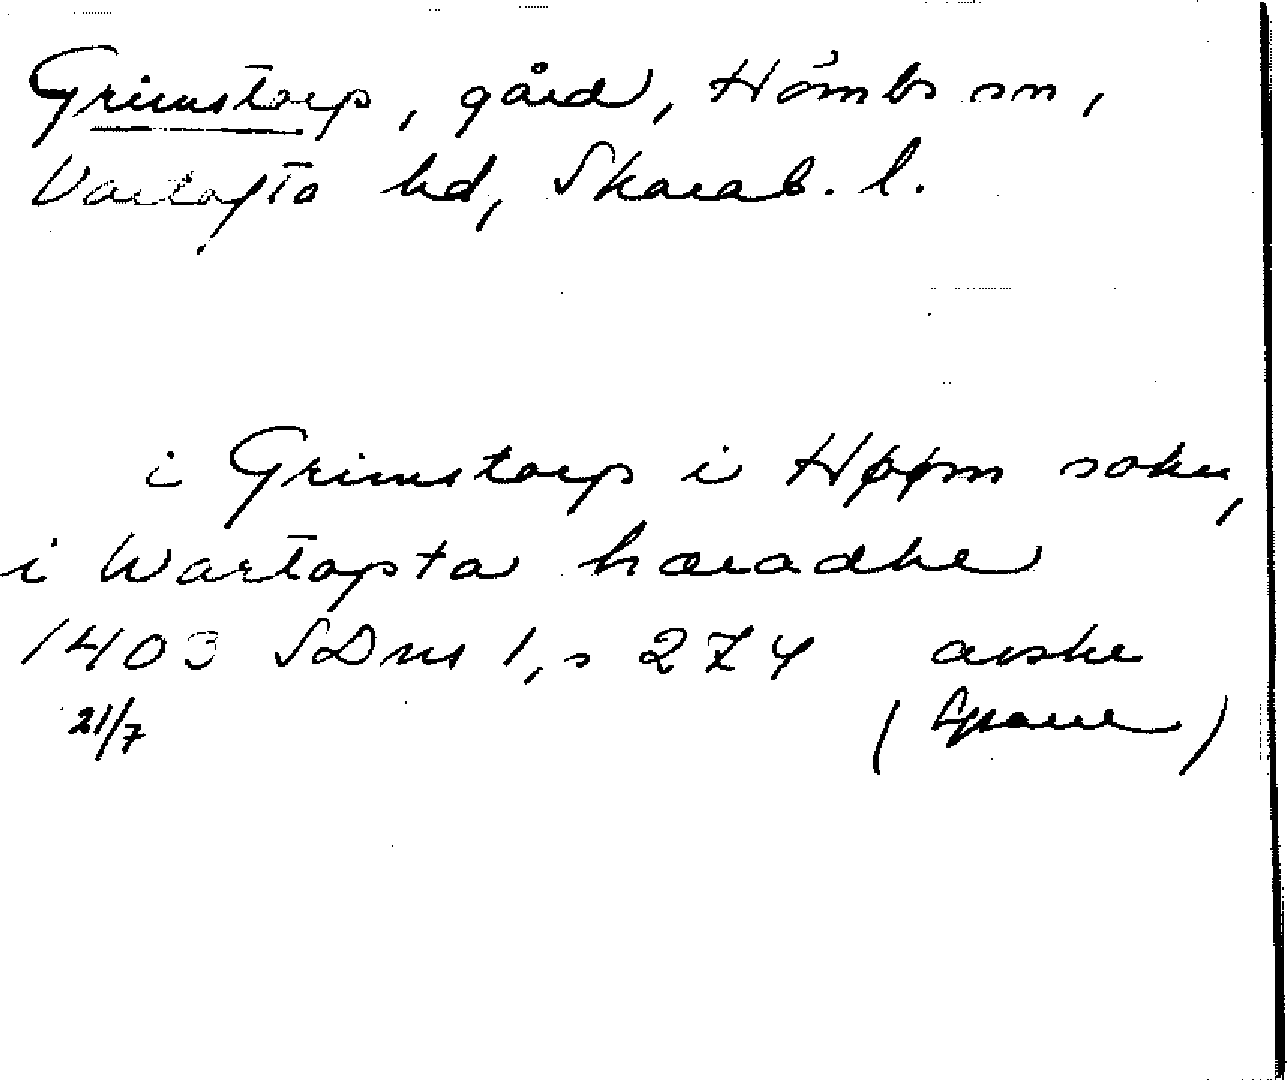 Grimstorp, gård, Hömbs sn,
Vartofta hd, Skarab. l.
i Grimstorp i Høøm sokn,
i Wartopta hæradhe
1403 SDns 1, s 274 avskr
21/7 ( )